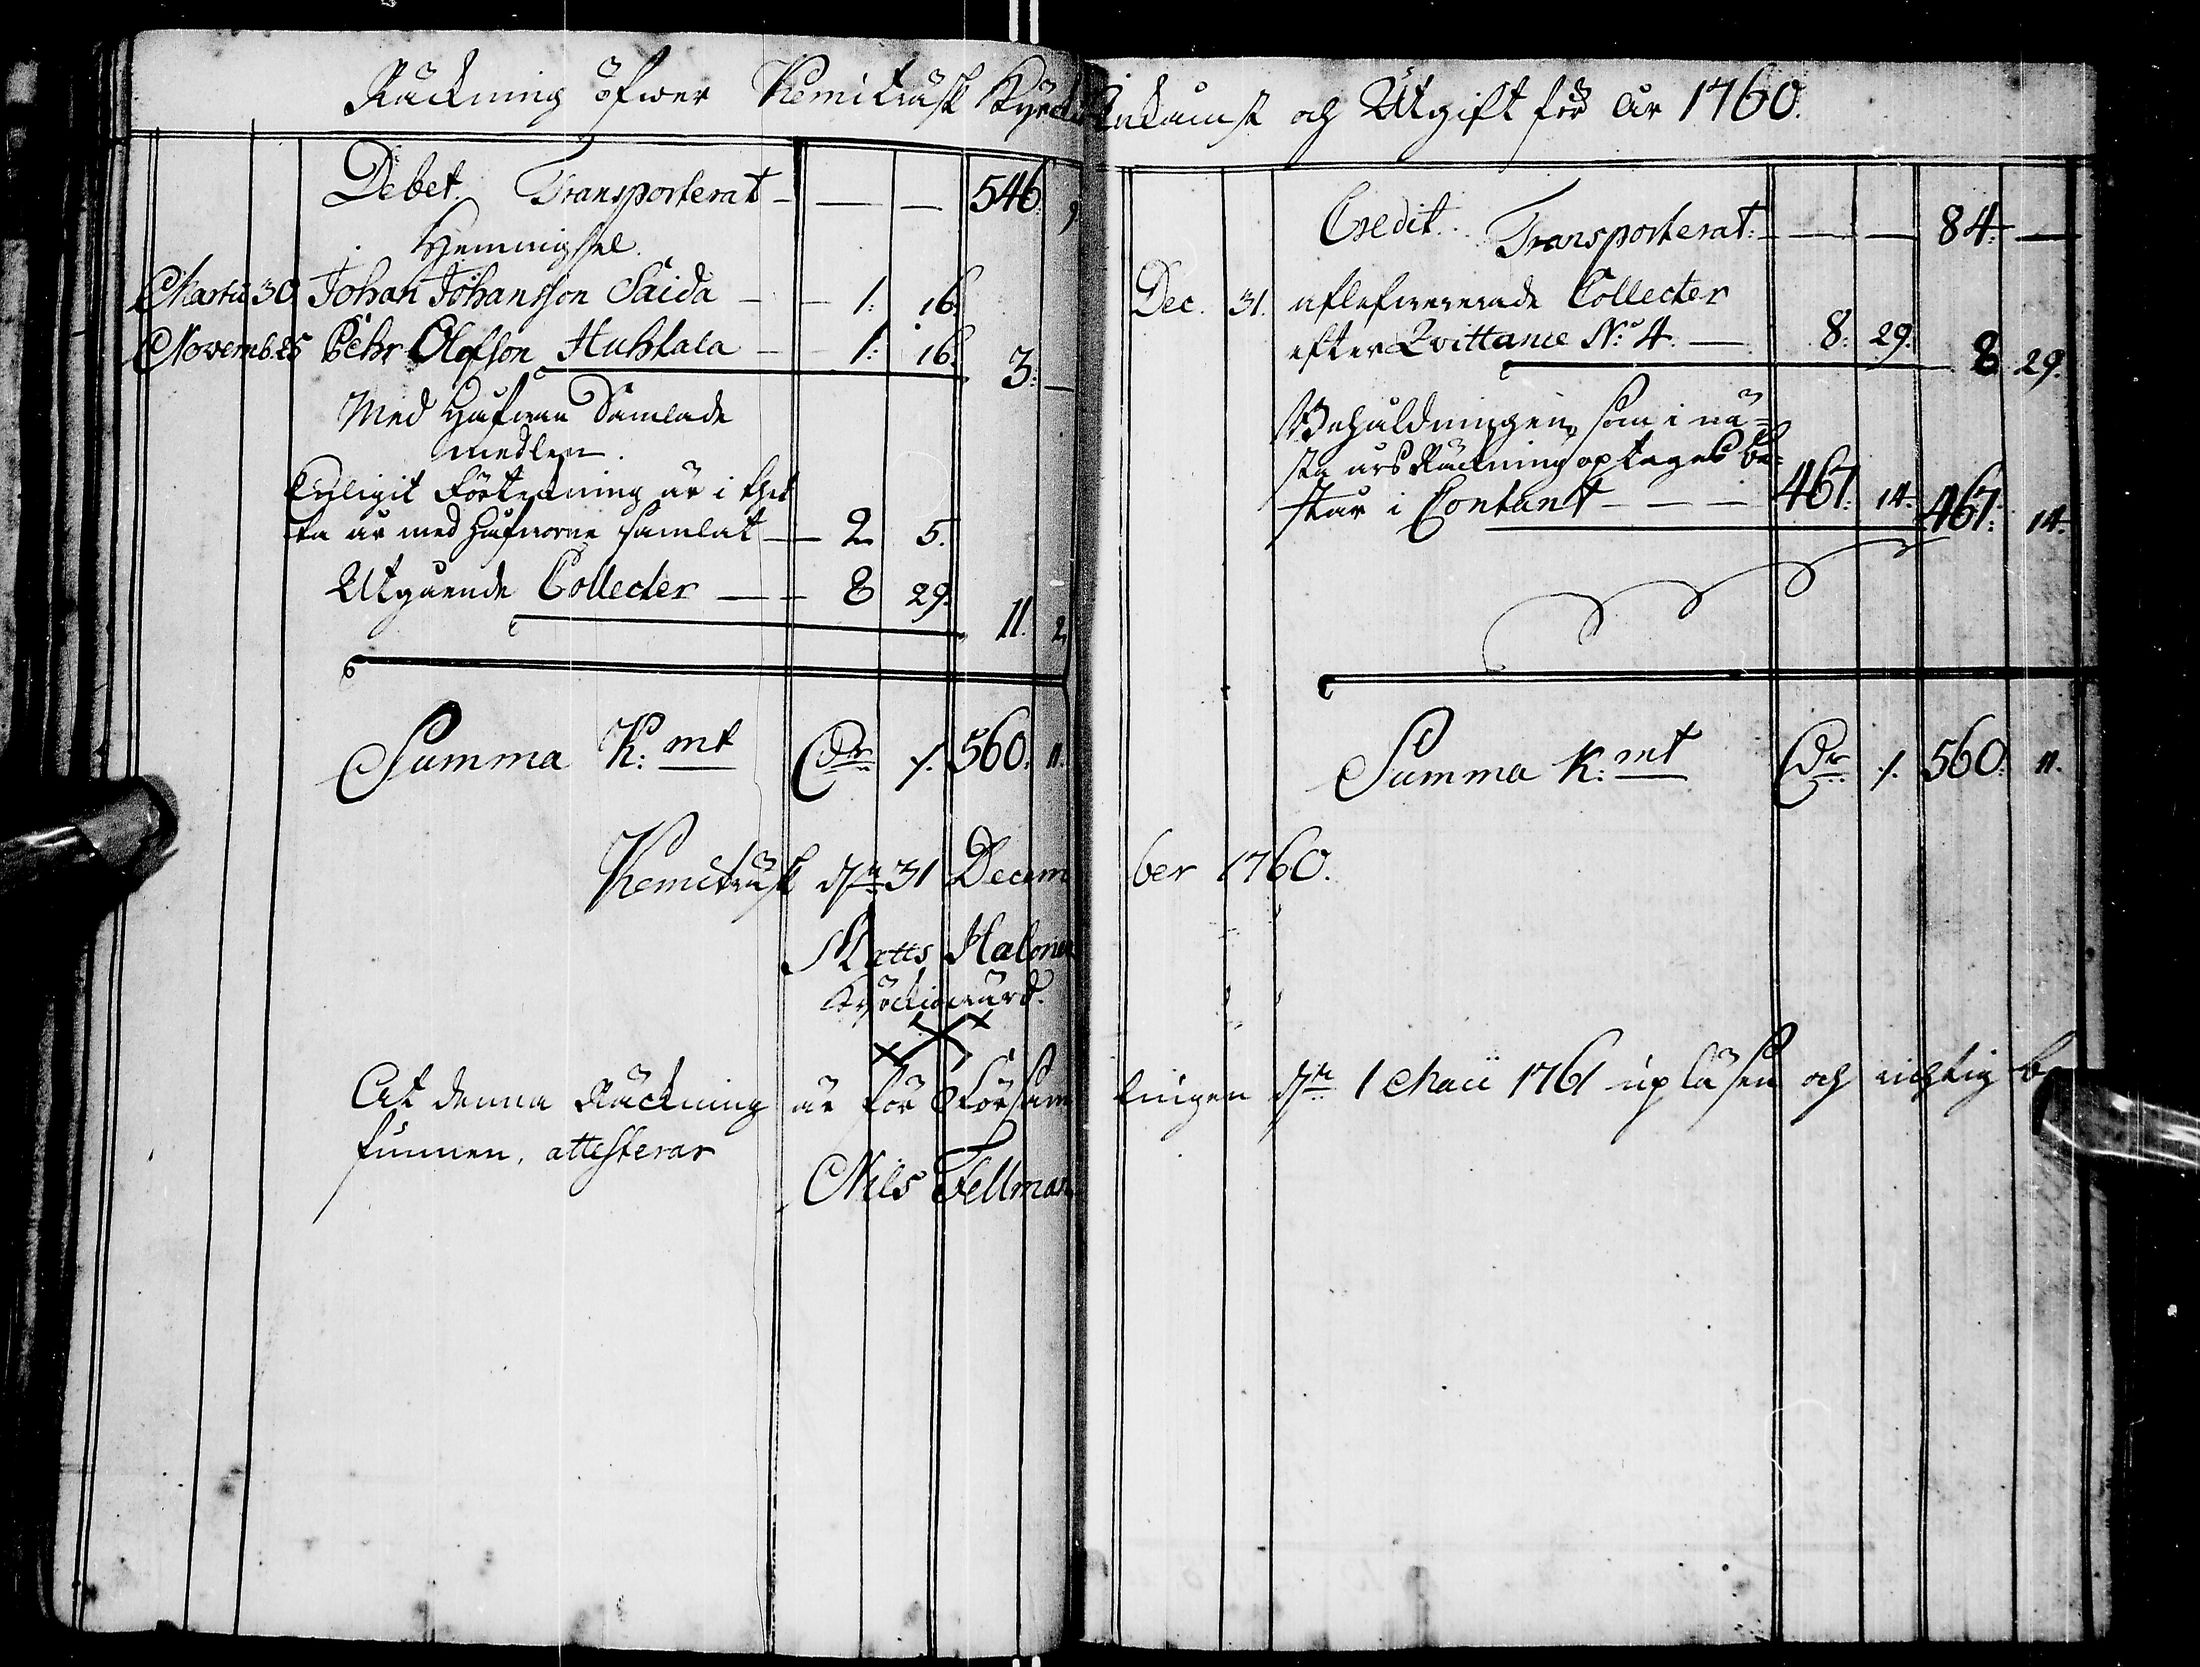 Räckning öfwer Kemiträsk Kyrckio Inkomst och Utgift för år 1760.
Debet. Transporterat - — — 546: 9
Hemmigsel.
Martii 30 Johan Johansson Saida — 1: 16.
Novemb. 25 Pehr Olofson Huhtala — 1: 16. 3: —
Med Håfwen Samlade
medlen.
Enligit Förtekning är i thet
ta år med håfworne samlat — 2 5.
Utgående Collecter — 8 29. 11. 2
Summa K: mt Cdr ./. 560. 11.
Credit. Transporterat: — — 84: —
Dec. 31. aflefwererade Collecter
efter Qvittance No 4. — 8: 29: 8 29.
Behåldningen, som i nä=
sta års Räckning optages be=
står i Contant — — — 467: 14. 467: 14.
Summa K: mt Cdr ./. 560: 11.
Kemiträsk dn 31 December 1760.
Matts Halonen
Kyrckiowärd.
At denna Räckning är för Församlingen dn 1 Maii 1761 upläsen och richtig be
funnen, attesterar
Nils Fellman